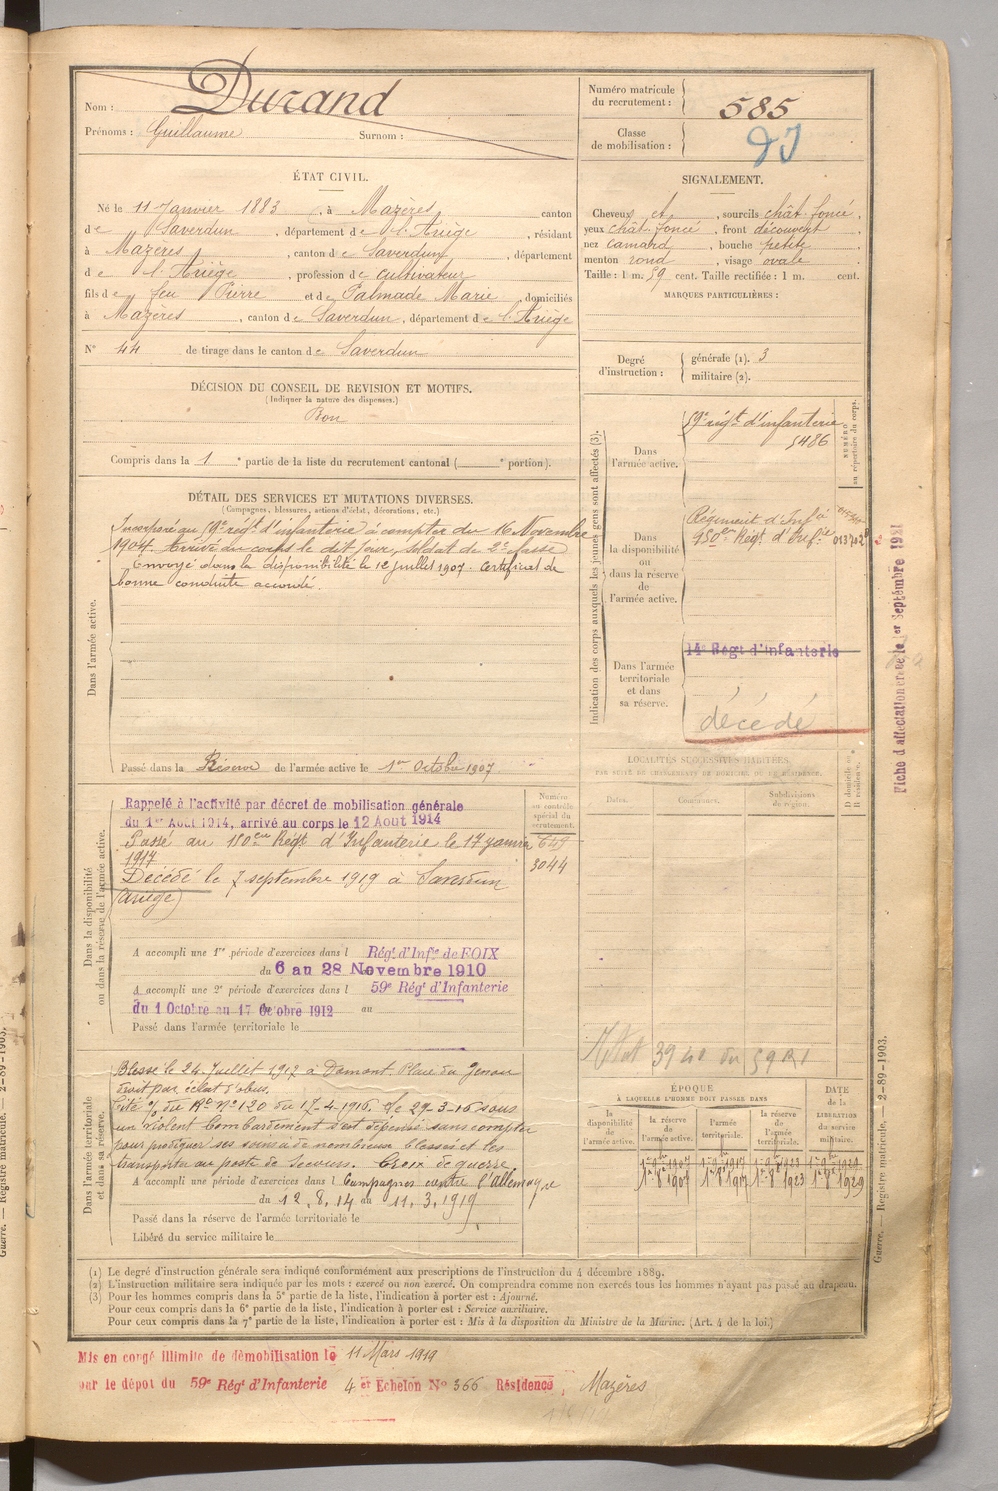 Nom : Durand
Prénoms : Guillaume Surnom :
ÉTAT CIVIL.
Né le 11 Janvier 1883, à Mazères canton
de Saverdun, département de l'Ariège, résidant
à Mazères, canton de Saverdun, département
de l'Ariège, profession de cultivateur
fils de feu Pierre et de Palmade Marie, domiciliés
à Mazères, canton de Saverdun, département de l'Ariège
N° 44 de tirage dans le canton de Saverdun
DÉCISION DU CONSEIL DE REVISION ET MOTIFS.
(Indiquer la nature des dispenses.)
Bon
Compris dans la 1e partie de la liste du recrutement cantonal ( e portion).
Numéro matricule
du recrutement : 585
Classe
de mobilisation :
SIGNALEMENT.
Cheveux et, sourcils chât. foncé,
yeux chât. foncé, front découvert,
nez camard, bouche petite,
menton rond, visage ovale.
Taille : 1 m. 59 cent. Taille rectifiée : 1 m. cent.
MARQUES PARTICULIÈRES :
Degré
d'instruction :
générale (1). 3
militaire (2).
DÉTAIL DES SERVICES ET MUTATIONS DIVERSES.
(Campagnes, blessures, actions d'éclat, décorations, etc.)
Dans l'armée active.
Incorporé au 59e régt d'infanterie à compter du 16 Novembre
1904. Arrivé au corps le dit jour, soldat de 2e classe
Envoyé dans la disponibilité le 12 juillet 1907. Certificat de
bonne conduite accordé.
Passé dans la Réserve de l'armée active le 1er Octobre 1907.
Indication des corps auxquels les jeunes gens sont affectés (3).
NUMÉRO
au répertoire du corps.
Dans
l'armée active.
59e régt d'infanterie
5486
Dans
la disponibilité
ou
dans la réserve
de
l'armée active.
Régiment d'Infie
Régt d'Infie
Dans l'armée
territoriale
et dans
sa réserve.
14e Régt d'Infanterie
décédé
Fiche d'affectation 1er Septembre
LOCALITÉS SUCCESSIVES HABITÉES
PAR SUITE DE CHANGEMENTS DE DOMICILE OU DE RÉSIDENCE.
Dates. Communes. Subdivisions
de région.
D domicile ou
R résidence.
Dans la disponibilité
ou dans la réserve de l'armée active.
Numéro
au contrôle
spécial du
recrutement.
649
3044
Rappelé à l'activité par décret de mobilisation générale
du 1er Aout 1914, arrivé au corps le 12 Aout 1914
Passé au Régt d'Infanterie le 17 janvier
1917
Décédé le 7 septembre 1919 à
(Ariège)
A accompli une 1re période d'exercices dans l Régt d'Infie de FOIX
du 6 au 28 Novembre 1910
A accompli une 2e période d'exercices dans l 59e Régt d'Infanterie
du 1 Octobre au 17 Octobre 1912 au
Passé dans l'armée territoriale le
Dans l'armée territoriale
et dans sa réserve.
Blessé le 24 Juillet 1917 à Plaie du Genou
droit par éclat d'obus.
Cité du Rt N° 120 du 17-4-1916. Le 29-3-16 sous
un violent bombardement s'est dépensé sans compter
pour prodiguer ses soins à de nombreux blessés et les
transporter au poste de Secours. Croix de guerre.
A accompli une période d'exercices dans l Campagnes contre l'allemagne
du 12.8.14 au 11.3.1919
Passé dans la réserve de l'armée territoriale le
Libéré du service militaire le
ÉPOQUE
À LAQUELLE L'HOMME DOIT PASSER DANS
la
disponibilité
de
l'armée active.
la réserve
de
l'armée active.
l'armée
territoriale.
la réserve
de
l'armée
territoriale.
DATE
de la
LIBÉRATION
du service
militaire.
1907 1917 1923 1929
1907 1923 1929
(1) Le degré d'instruction générale sera indiqué conformément aux prescriptions de l'instruction du 4 décembre 1889.
(2) L'instruction militaire sera indiquée par les mots : exercé ou non exercé. On comprendra comme non exercés tous les hommes n'ayant pas passé au drapeau.
(3) Pour les hommes compris dans la 5e partie de la liste, l'indication à porter est : Ajourné.
Pour ceux compris dans la 6e partie de la liste, l'indication à porter est : Service auxiliaire.
Pour ceux compris dans la 7e partie de la liste, l'indication à porter est : Mis à la disposition du Ministre de la Marine. (Art. 4 de la loi.)
Guerre. — Registre matricule. — 2-89-1903.
Mis en congé illimité de démobilisation le 11 Mars 1919
par le dépôt du 59e Régt d'Infanterie 4 Echelon N° 366 Résidence, Mazères